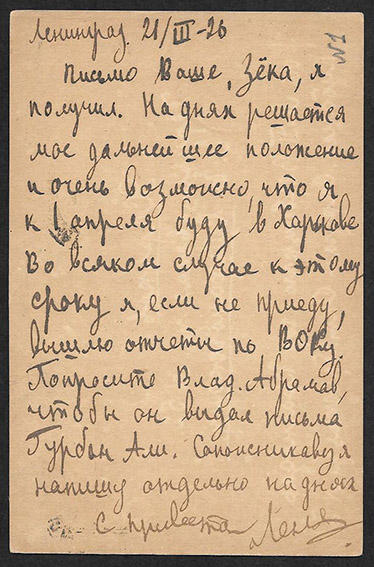 Ленинград. 21/III-26
Письмо Ваше, Зёка, я
получил. На днях решается
мое дальнейшее положение
и очень возможно, что я
к 1 апреля буду в Харькове
Во всяком случае к этому
сроку я, если не приеду,
вышлю отчеты по ВОКу.
Попросите Влад. Абрамов,
чтобы он выдал письма
Гурбан Али. Сапожникову я
напишу отдельно на днях
С приветом